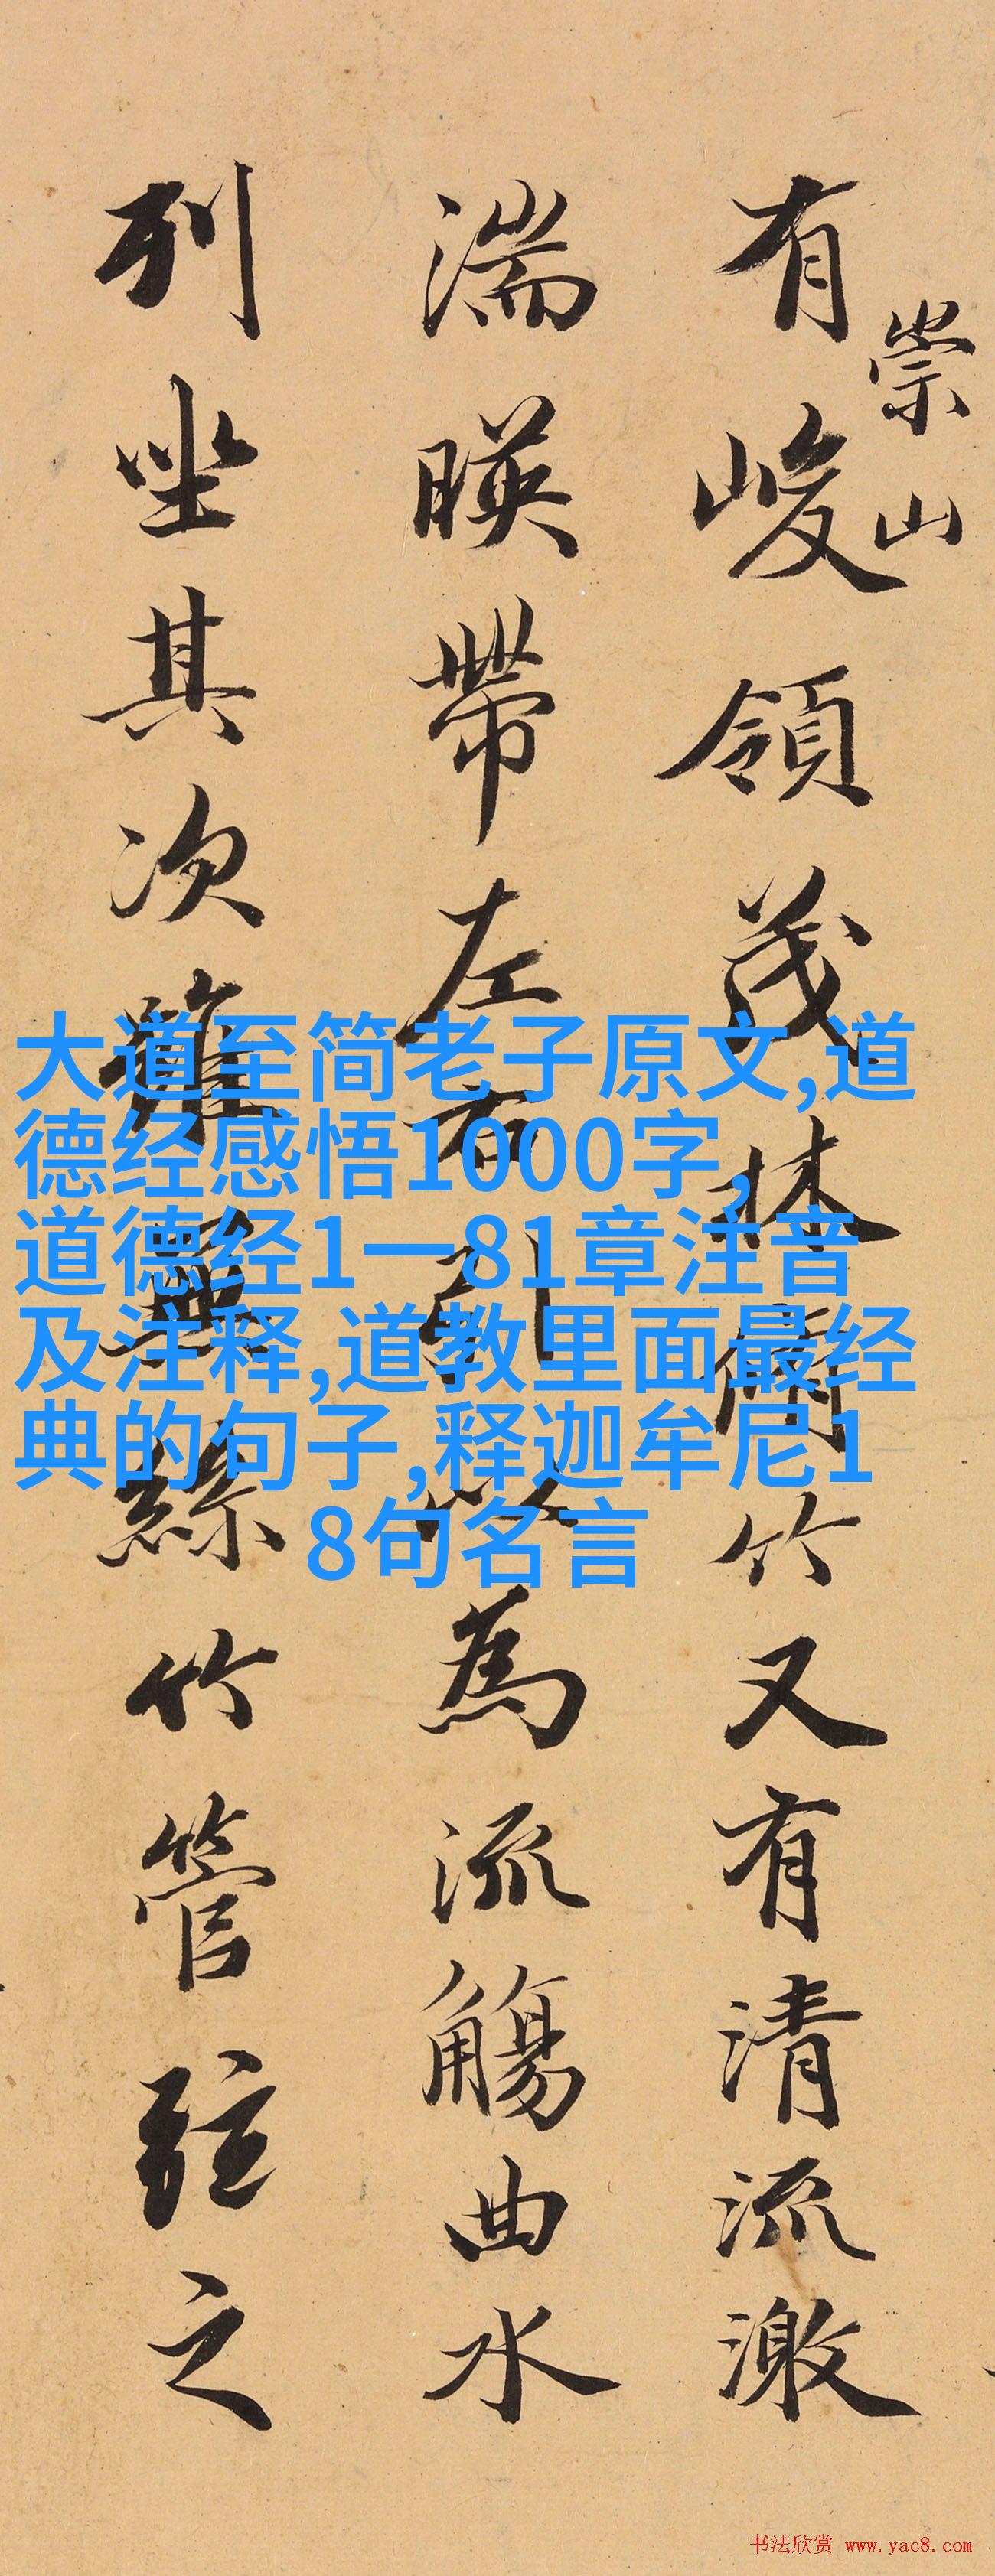 崇山
有峻領茂林脩竹又有清流激
湍暎帶左右引以為流觴曲水
列坐其次雖無絲竹管弦之
大道至简老子原文,道
德经感悟1000字,
道德经1一81章注音
及注释,道教里面最经
典的句子,释迦牟尼1
8句名言
书法欣赏 www.yac8.com